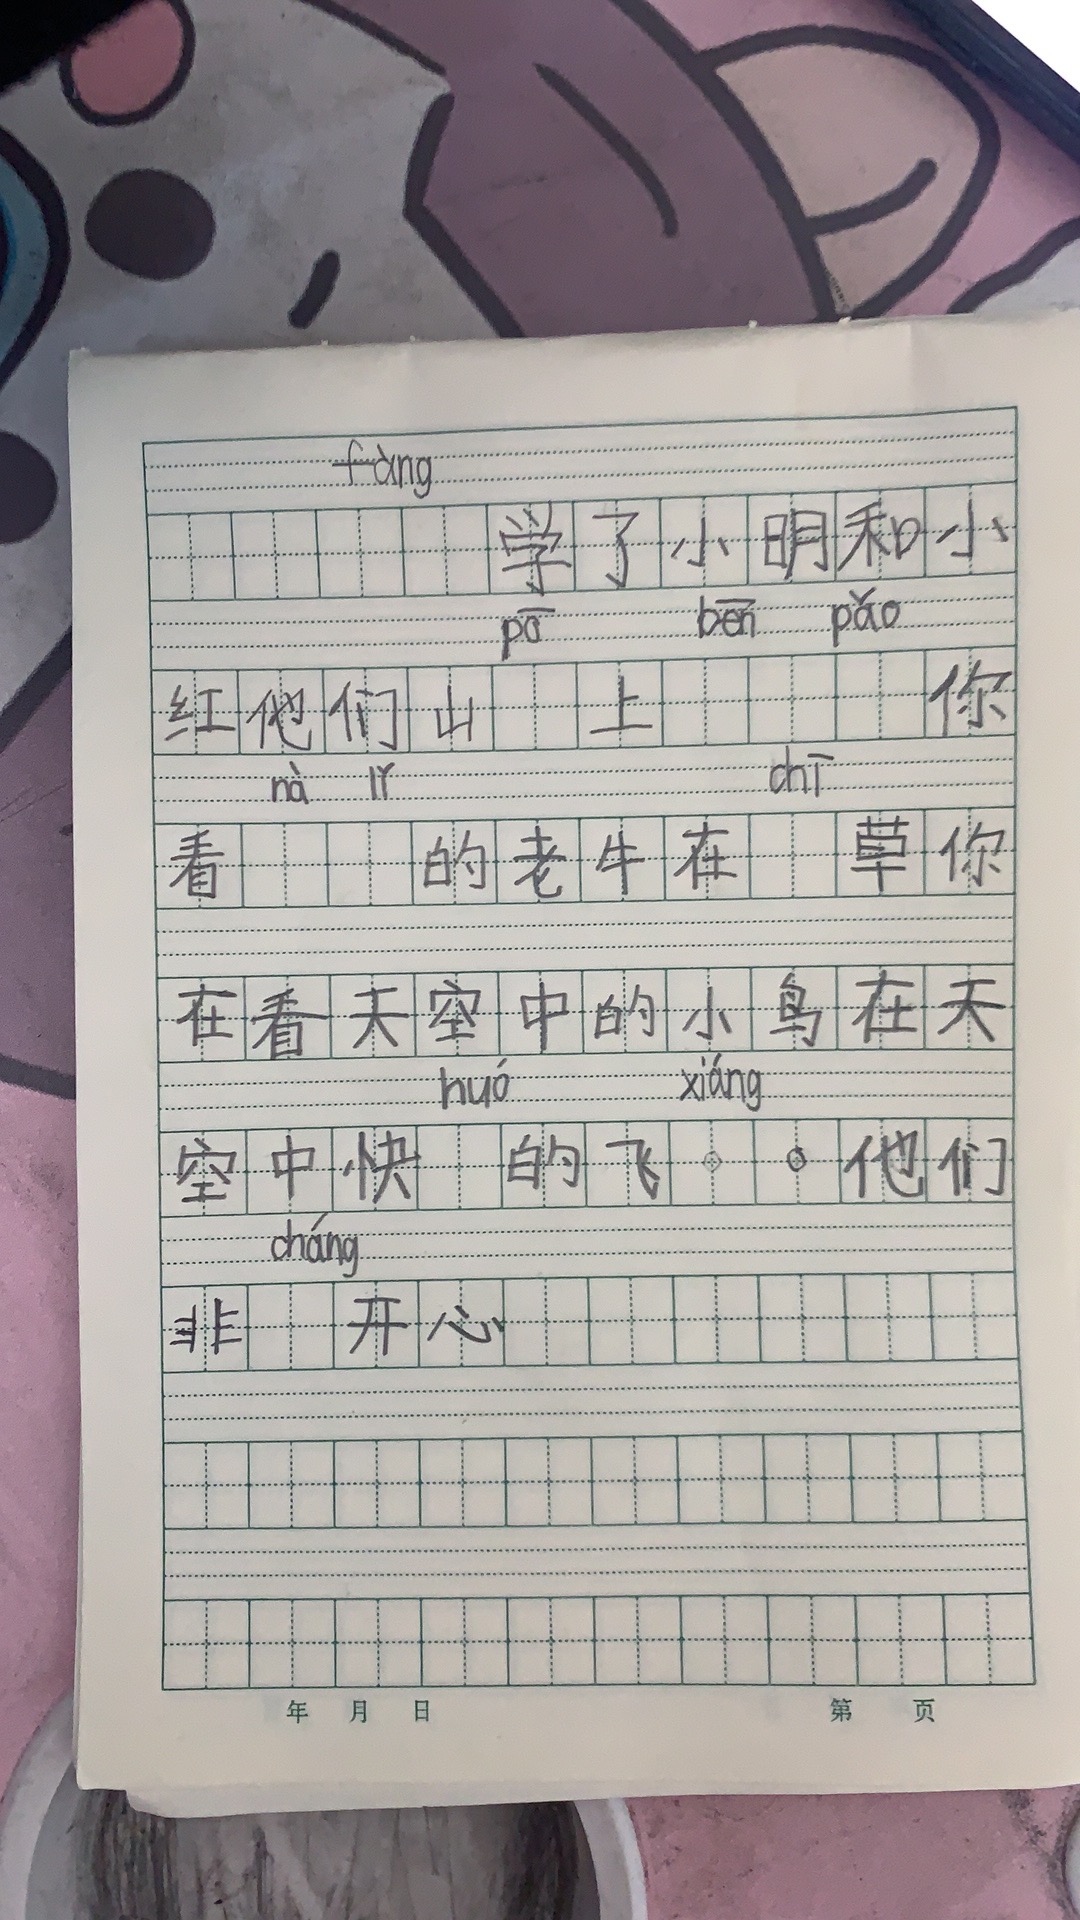 fàng
学了小明和小
pō bēn pǎo
红他们山上你
nà lǐ chī
看的老牛在草你
在看天空中的小鸟在天
huó xiáng
空中快的飞。。他们
cháng
非开心
年 月 日 第 页